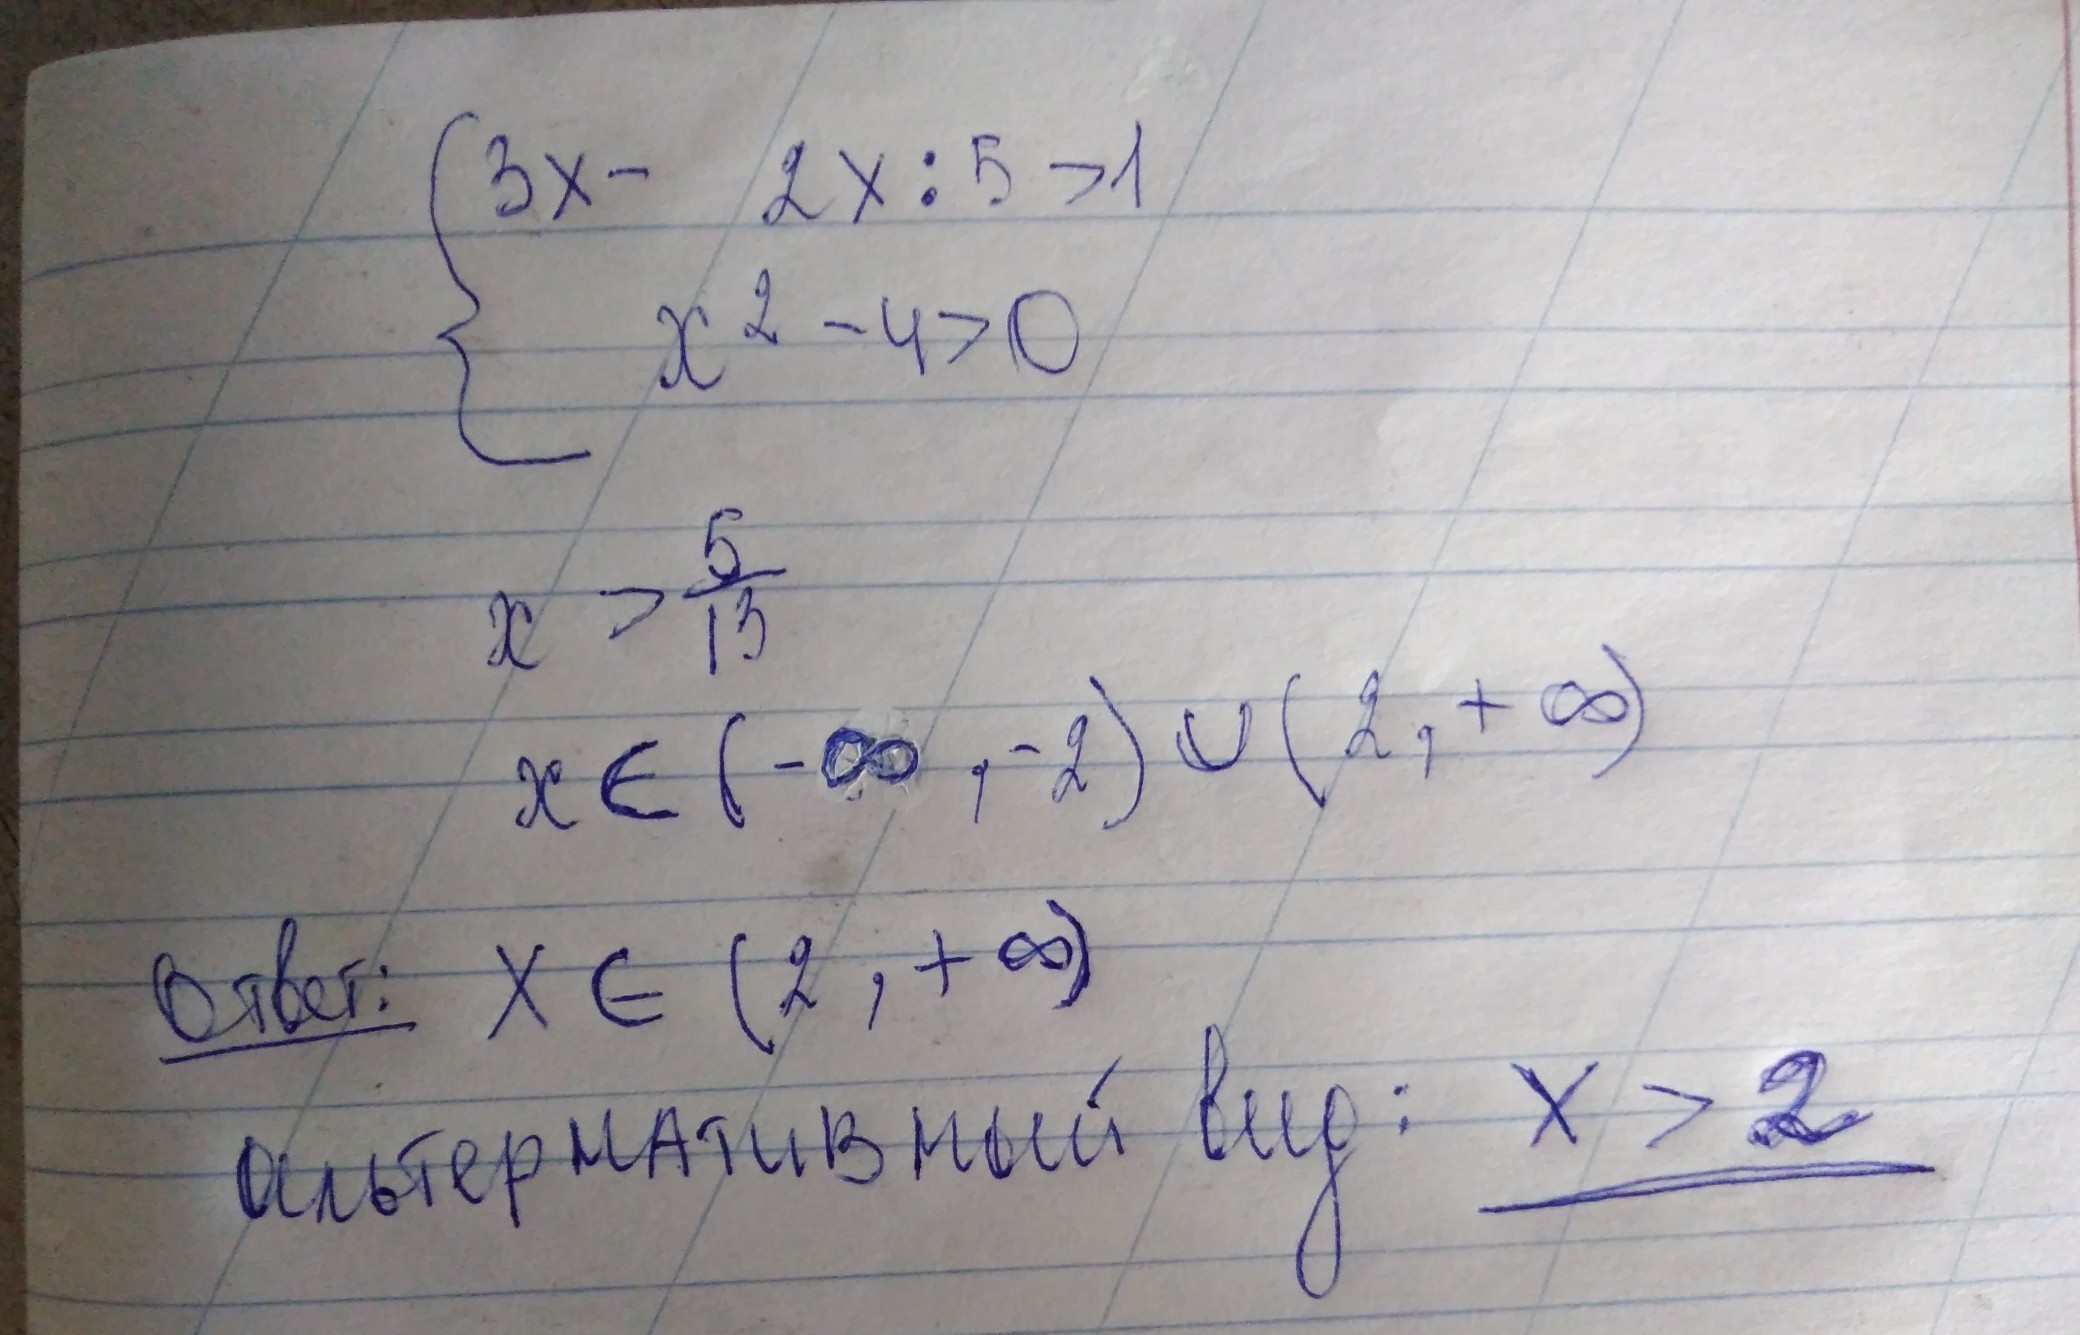 3x - 2x : 5 > 1
x² - 4 > 0
x > 5/13
x ∈ (-∞, -2) ∪ (2, +∞)
Ответ: x ∈ (2, +∞)
альтернативный вид: x > 2